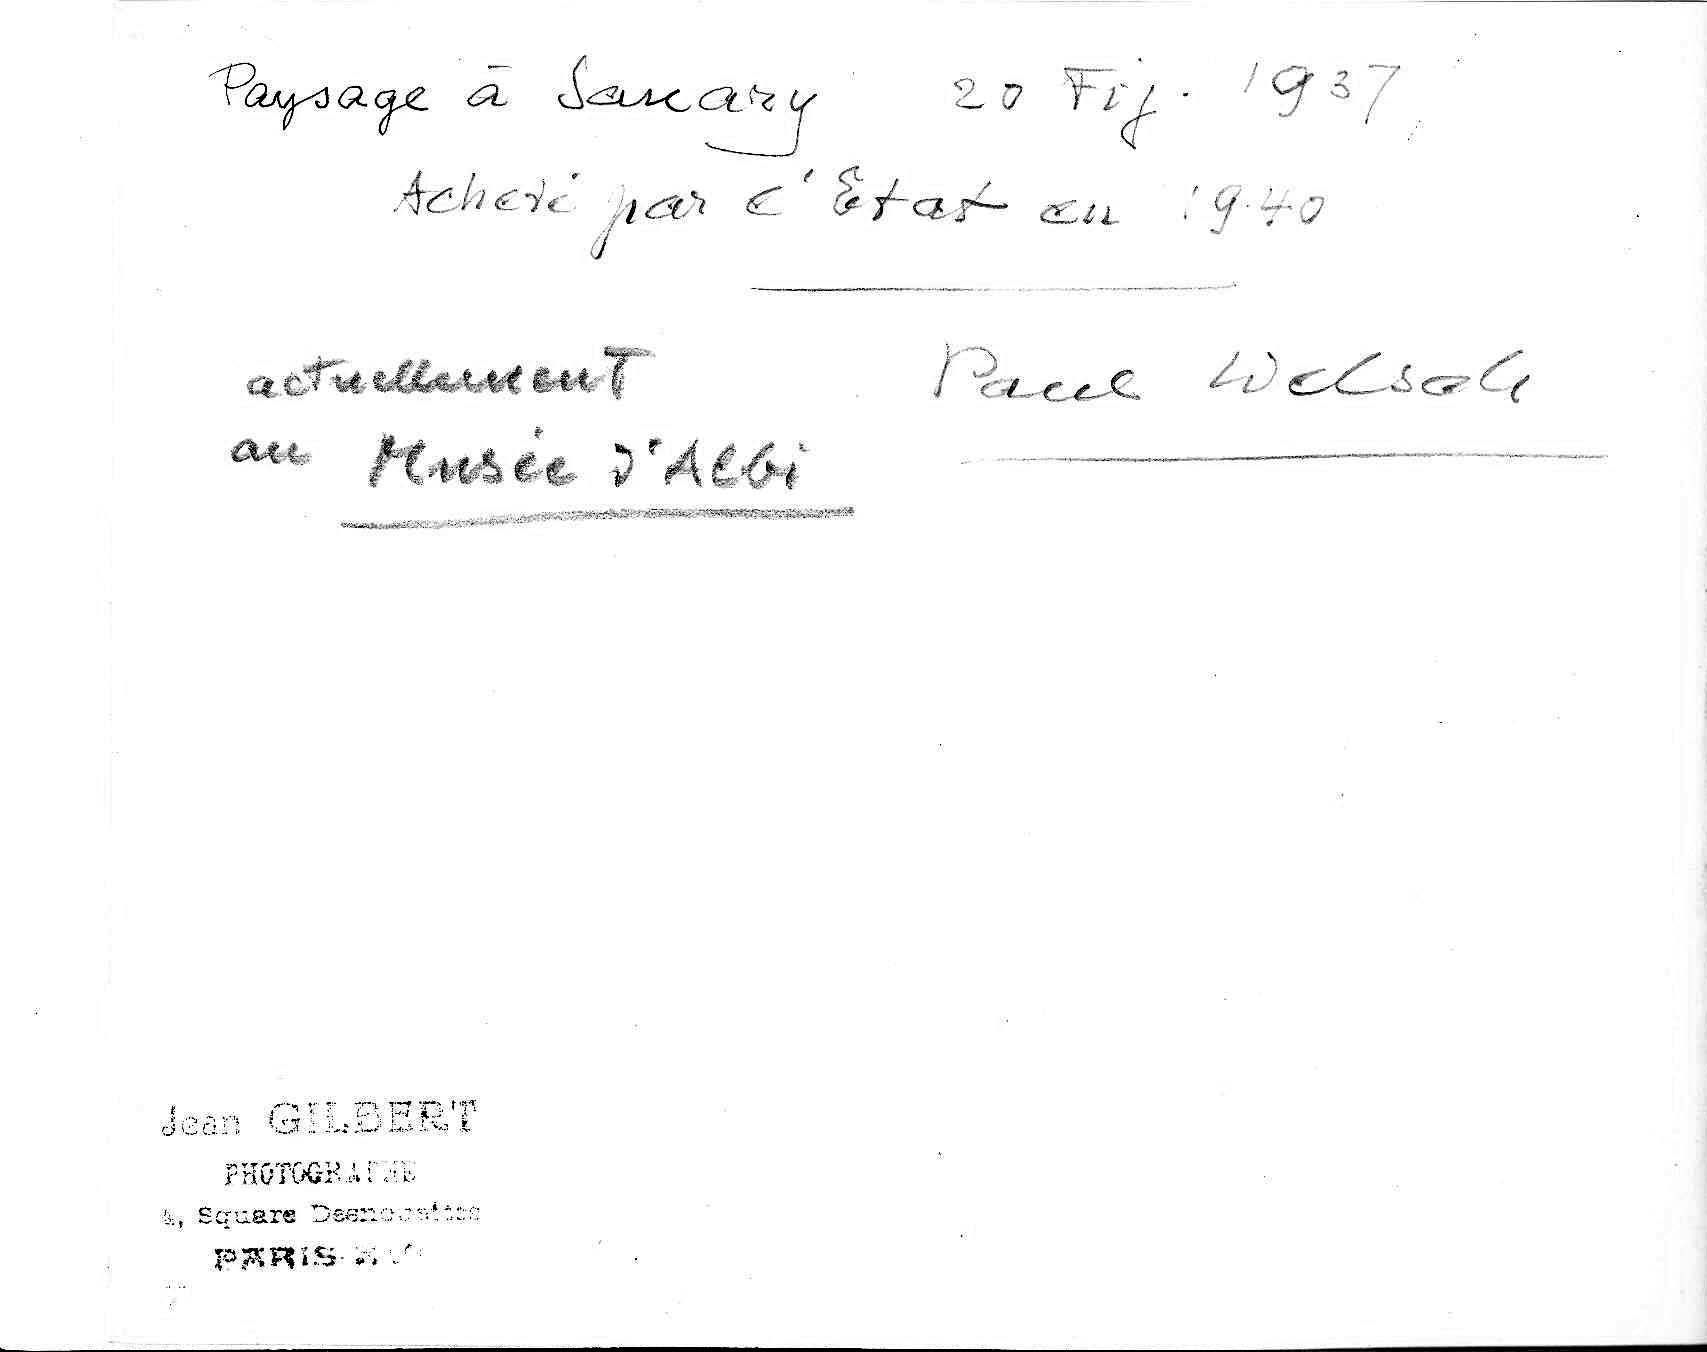 Paysage à Sanary 20 Fig. 1937
Acheté par l'Etat en 1940
actuellement
au Musée d'Albi
Paul Welsch
Jean GILBERT
PHOTOGRAPHE
Square Desnouettes
PARIS